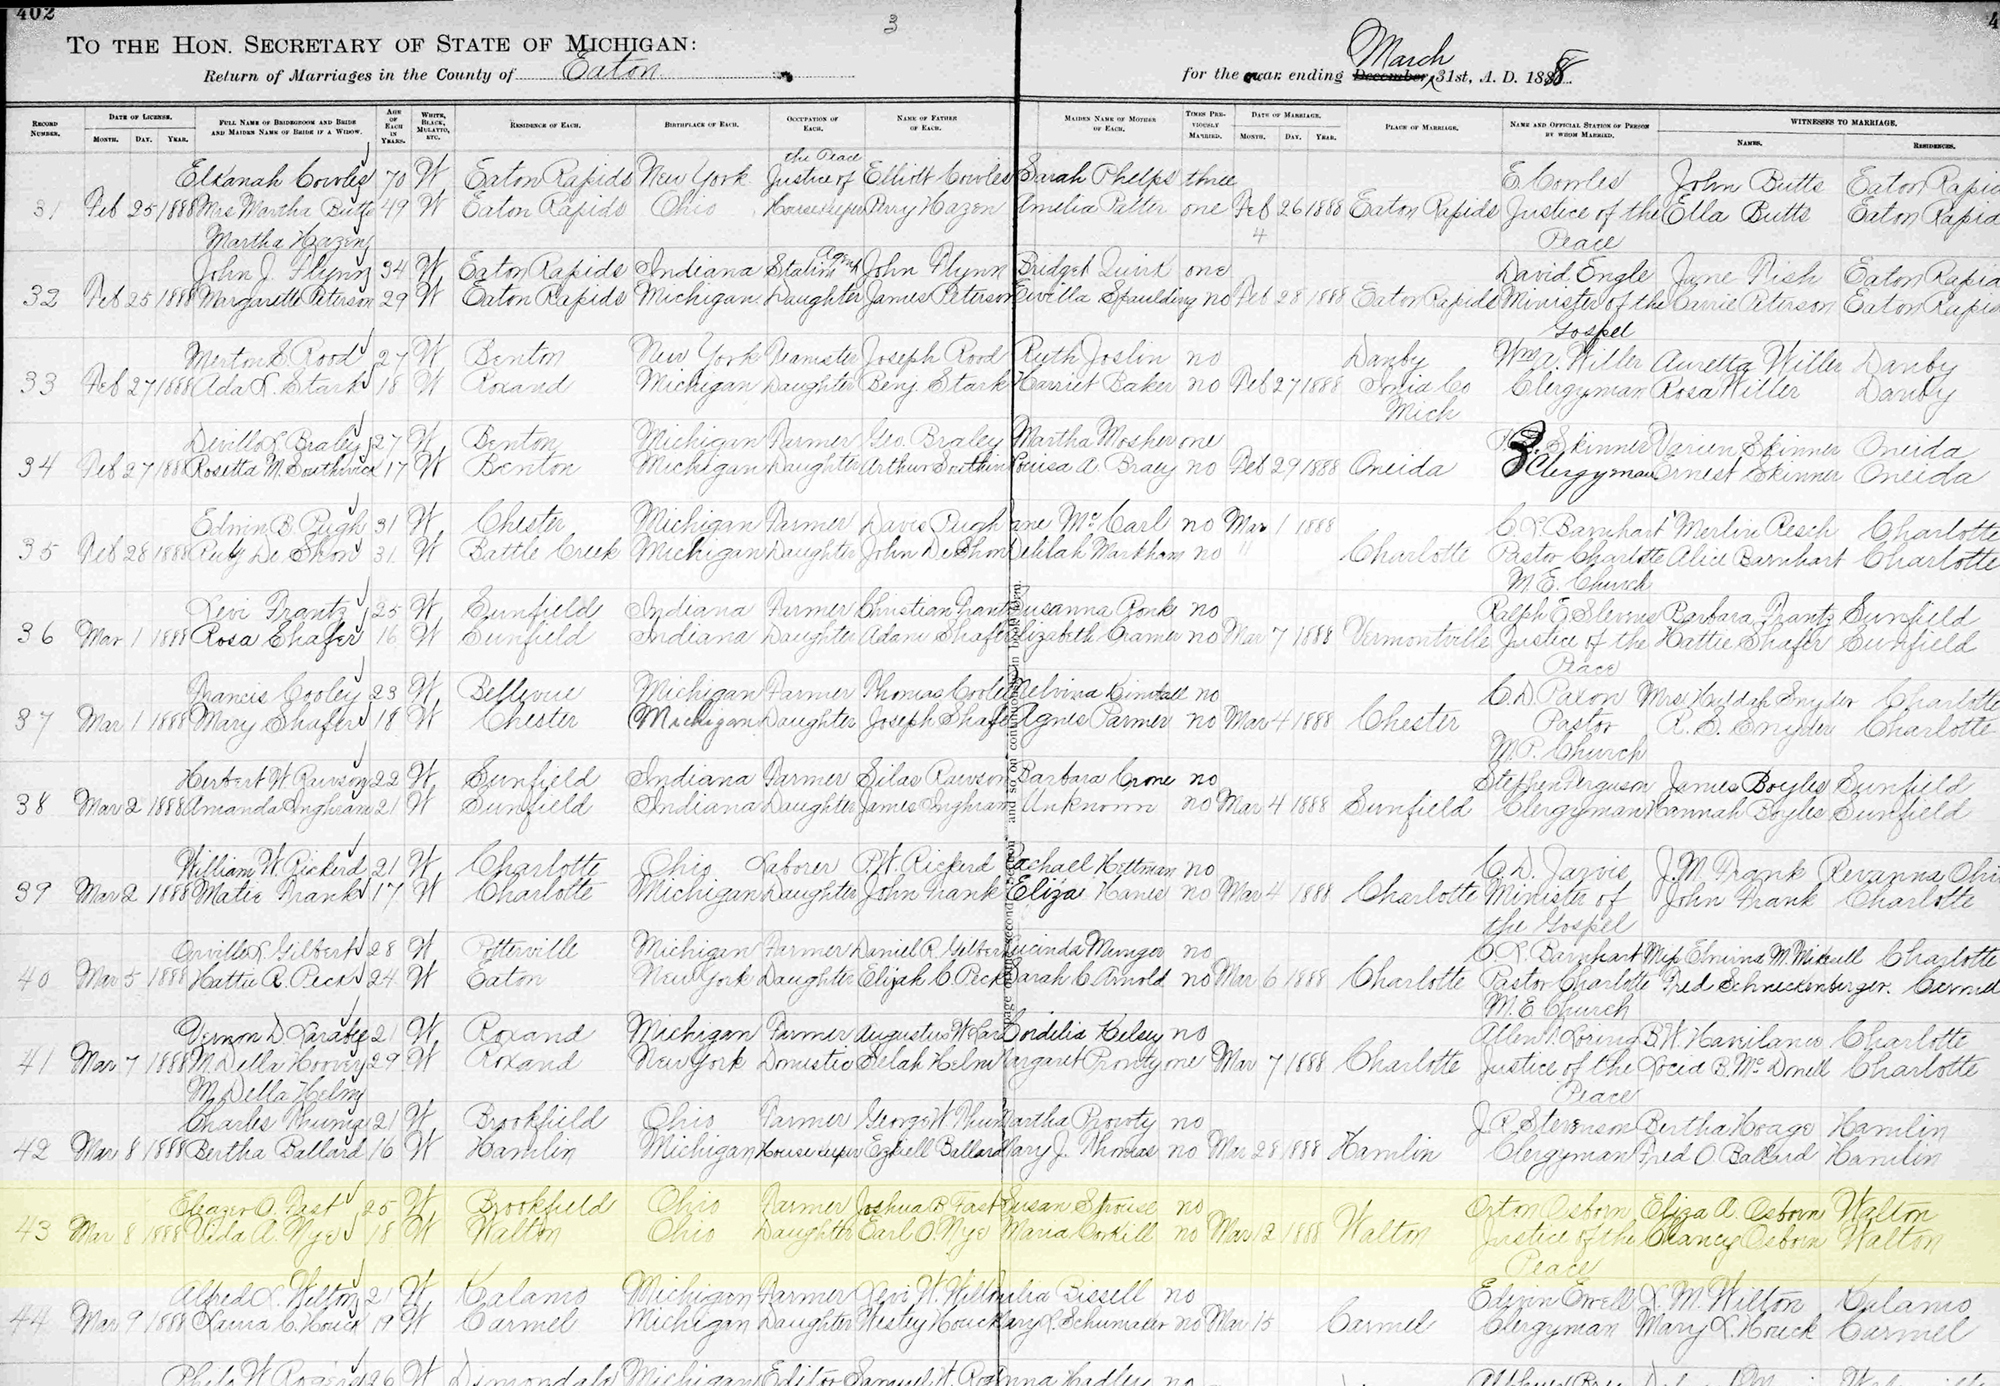 402
3
4
TO THE HON. SECRETARY OF STATE OF MICHIGAN:
Return of Marriages in the County of Eaton
March
for the year ending December 31st, A. D. 1888
RECORD NUMBER. DATE OF LICENSE. MONTH. DAY. YEAR. FULL NAME OF BRIDEGROOM AND BRIDE AND MAIDEN NAME OF BRIDE IF A WIDOW. AGE OF EACH IN YEARS. WHITE, BLACK, MULATTO, ETC. RESIDENCE OF EACH. BIRTHPLACE OF EACH. OCCUPATION OF EACH. NAME OF FATHER OF EACH. MAIDEN NAME OF MOTHER OF EACH. TIMES PREVIOUSLY MARRIED. DATE OF MARRIAGE. MONTH. DAY. YEAR. PLACE OF MARRIAGE. NAME AND OFFICIAL STATION OF PERSON BY WHOM MARRIED. WITNESSES TO MARRIAGE. NAMES. RESIDENCES.
the Peace
Elkanah Cowles 70 W Eaton Rapids New York Justice of Elliott Cowles Sarah Phelps three E Cowles John Butts Eaton Rapid
31 Feb 25 1888 Mrs Martha Butts 49 W Eaton Rapids Ohio Housekeeper Perry Hazen Amelia Potter one Feb 26 1888 Eaton Rapids Justice of the Ella Butts Eaton Rapid
Martha Hazen 4 Peace
John J. Flynn 34 W Eaton Rapids Indiana Station Agent John Flynn Bridget Quirk one David Engle June Fish Eaton Rapid
32 Feb 25 1888 Margarette Peterson 29 W Eaton Rapids Michigan Daughter James Peterson Spaulding no Feb 28 1888 Eaton Rapids Minister of the Carrie Peterson Eaton Rapid
Gospel
Merton S. Rood 27 W Benton New York Teamster Joseph Rood Ruth Joslin no Danby Wm A. Willer Auretta Willer Danby
33 Feb 27 1888 Ada L. Stark 18 W Roxand Michigan Daughter Benj Stark Harriet Baker no Feb 27 1888 Ionia Co Clergyman Rosa Willer Danby
Mich
Deville L Braley 27 W Benton Michigan Farmer Geo. Braley Martha Mosher one Skinner Darien Skinner Oneida
34 Feb 27 1888 Rosetta M. Southwick 17 W Benton Michigan Daughter Arthur Louisa A. Braley no Feb 29 1888 Oneida Clergyman Ernest Skinner Oneida
Edwin B Pugh 31 W Chester Michigan Farmer Davis Pugh Jane McCarl no Mar 1 1888 C L Barnhart Merlin Pesch Charlotte
35 Feb 28 1888 De Shon 31 W Battle Creek Michigan Daughter John DeShon Delilah Markham no " Charlotte Pastor Charlotte Alice Barnhart Charlotte
M.E. Church
Levi Frantz 25 W Sunfield Indiana Farmer Christian Frantz Susanna Ronk no Ralph E Stevens Barbara Frantz Sunfield
36 Mar 1 1888 Rosa Shafer 16 W Sunfield Indiana Daughter Adam Shafer Elizabeth Cramer no Mar 7 1888 Vermontville Justice of the Hattie Shafer Sunfield
Peace
Francis Cooley 23 W Bellevue Michigan Farmer Thomas Cooley Melvina Kimball no C. D. Paxon Mrs Snyder Charlotte
37 Mar 1 1888 Mary Shafer 18 W Chester Michigan Daughter Joseph Shafer Agnes Parmer no Mar 4 1888 Chester Pastor R. D. Snyder Charlotte
M.P. Church
Herbert W Rawson 22 W Sunfield Indiana Farmer Silas Rawson Barbara Crone no Stephen Ferguson James Boyles Sunfield
38 Mar 2 1888 Amanda Inghram 21 W Sunfield Indiana Daughter James Inghram Unknown no Mar 4 1888 Sunfield Clergyman Hannah Boyles Sunfield
William W. Rickerd 21 W Charlotte Ohio Laborer P.W. Rickerd Rachael Hettman no C. D. Jarvis J. M. Frank Revanna Ohi
39 Mar 2 1888 Matie Frank 17 W Charlotte Michigan Daughter John Frank Eliza Hanes no Mar 4 1888 Charlotte Minister of John Frank Charlotte
the Gospel
Orville L Gilbert 28 W Potterville Michigan Farmer Daniel R. Gilbert Lucinda Munger no C. L. Barnhart Miss Elmina M. Mikesell Charlotte
40 Mar 5 1888 Hattie R. Peck 24 W Eaton New York Daughter Elijah C Peck Sarah C Arnold no Mar 6 1888 Charlotte Pastor Charlotte Fred Schneckenberger. Carmel
M.E. Church
Vernon D. Laraby 21 W Roxand Michigan Farmer Augustus W Lar Cordelia Kelsey no Allen Loring B. W. Havilance Charlotte
41 Mar 7 1888 M. Della Hoovey 29 W Roxand New York Domestic Selah Helm Margaret Pronty one Mar 7 1888 Charlotte Justice of the Locia B. McDonell Charlotte
M. Della Helm Peace
Charles Thuma 21 W Brookfield Ohio Farmer George W Thum Martha Prowty no J. R. Stevenson Bertha Hoage Hamlin
42 Mar 8 1888 Bertha Ballard 16 W Hamlin Michigan Housekeeper Ezkiell Ballard Mary J. Thomas no Mar 28 1888 Hamlin Clergyman Fred O. Ballard Hamlin
Eleazer O. Fast 25 W Brookfield Ohio Farmer Joshua B Fast Susan Shouse no Orton Osborn Eliza A. Osborn Walton
43 Mar 8 1888 Vida A. Nye 18 W Walton Ohio Daughter Earl O. Nye Maria Corkill no Mar 12 1888 Walton Justice of the Clancy Osborn Walton
Peace
Alfred L. Wilton 21 W Kalamo Michigan Farmer Levi W. Wilton Julia Bissell no Edwin Ewell L. M. Wilton Kalamo
44 Mar 9 1888 Laura C. Houck 19 W Carmel Michigan Daughter Wesley Houck Mary L. Schumaker no Mar 15 Carmel Clergyman Mary L. Houck Carmel
Philo W Rogers 26 W Dimondale Michigan Editor Samuel W. Rog Anna Hadley no